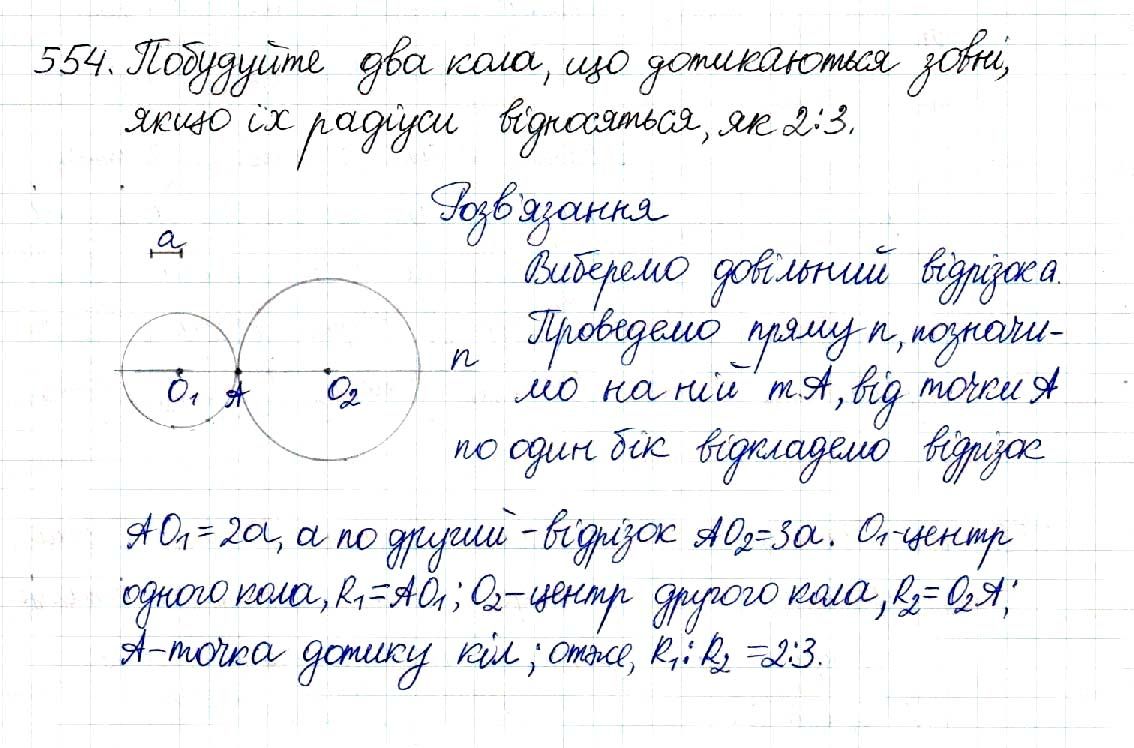 554. Побудуйте два кола, що дотикаються зовні,
якщо їх радіуси відносяться, як 2:3.
Розв'язання
a
Виберемо довільний відрізок a.
Проведемо пряму n, позначи-
мо на ній т.A, від точки A
по один бік відкладемо відрізок
n
O₁ A O₂
AO₁=2a, а по другий - відрізок AO₂=3a. O₁-центр
одного кола, R₁=AO₁; O₂-центр другого кола, R₂=O₂A;
A-точка дотику кіл; отже, R₁:R₂=2:3.